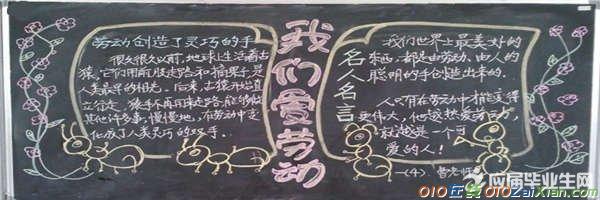 劳动创造了灵巧的手
很久很久以前，地球上生活着古
猿。它们用前肢走路和摘果子，是
人类最早的祖先。后来，古猿开始直
立行走。猿手再用来走路，能够做
其他许多事，慢慢地，在劳动中变
化成了人类灵巧的双手。
我们爱劳动
名人名言
我们世界上最美好的
东西，都是由劳动、由人的
聪明的手创造出来的。
人只有在劳动中才能变得
更伟大，他越热爱劳动，
就越是一个可
爱的人！
(4)、曹老师
应届毕业生网
010在线 010ZaiXian.com